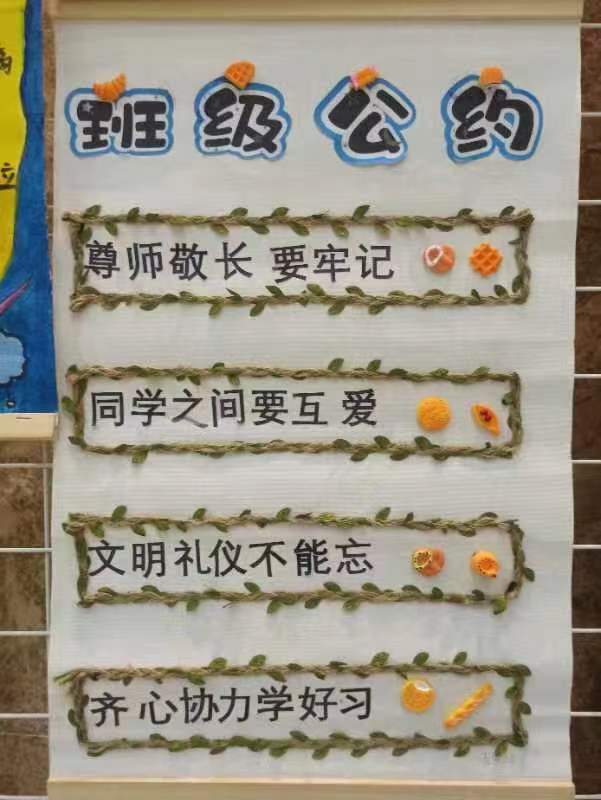 班级公约
尊师敬长 要牢记
同学之间要互爱
文明礼仪不能忘
齐心协力学好习
立